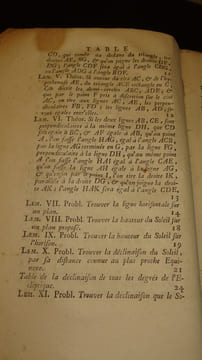 TABLE
CD, qui tombe au dedans du triangle, les
droites AE, EG, & qu'on joigne les droites DF,
DG; l'angle CDF sera égal à l'angle CDE,
ou l'angle ADG à l'angle EDF.
LEM. V. Théor. Si autour du côté AC, & de l'axe
AE, du triangle ACE rectangle en C,
On décrit les demi-cercles ABC, ADE; &
que par le point F pris à discrétion sur le côté
AC, on tire aux lignes AC, AE, les perpen-
diculaires FB, FD: les lignes AB, AD, se-
ront égales entr'elles.
LEM. VI. Théor. Si les deux lignes AB, CE, sont
perpendiculaires à la même ligne DH, que CD
soit égale à BC, & AF égale à AB, qu'au point
A, l'on fasse l'angle HAG, égal à l'angle ACB,
par la ligne AG terminée en G, par la ligne FG,
perpendiculaire à la ligne DH, qu'au même point
A l'on fasse l'angle HAI égal à l'angle CAE,
qu'on fasse la ligne AH égale à la ligne AG,
& qu'enfin par le point I, l'on tire la droite IK,
parallèle à la droite DG; & qu'on joigne la droi-
te AK: l'angle HAK sera égal à l'angle CDE,
13
LEM. VII. Probl. Trouver la ligne horizontale sur
un plan. 14
LEM. VIII. Probl. Trouver la hauteur du Soleil sur
un plan proposé. 18
LEM. IX. Probl. Trouver la hauteur du Soleil sur
l'horison. 19
LEM. X. Probl. Trouver la déclinaison du Soleil,
par sa distance connue au plus proche Equi-
noxe. 21
Table de la déclinaison de tous les degrés de l'E-
cliptique. 24
LEM. XI. Probl. Trouver la déclinaison que le So-